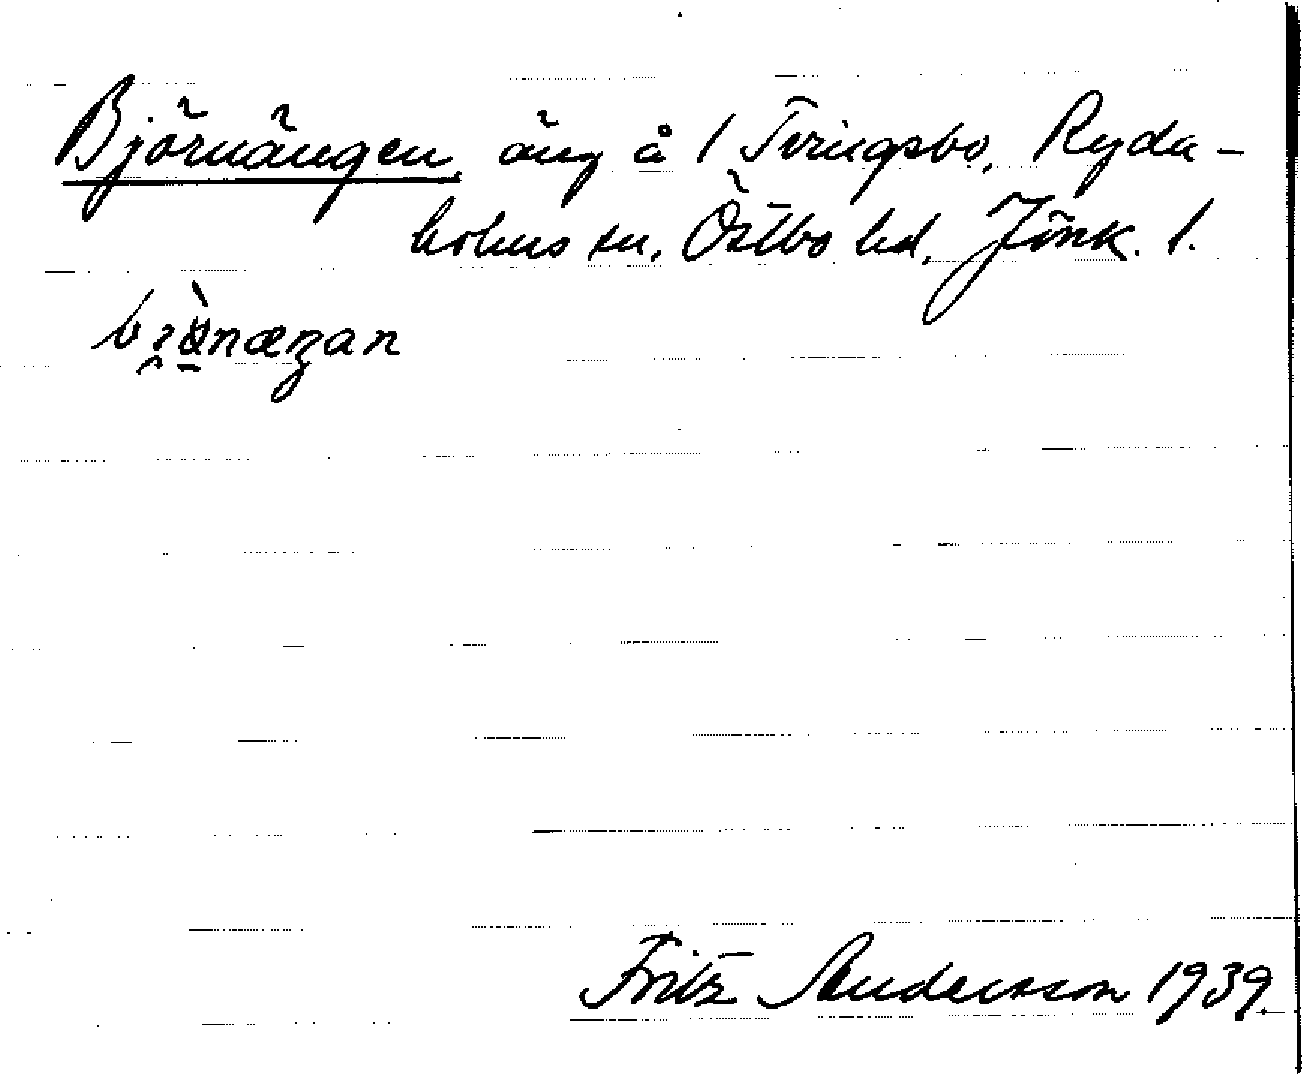 Björnängen, äng å 1 Tvingsbo, Ryda-
holms sn, Östbo hd, Jönk. l.
Fritz Andersson 1939.